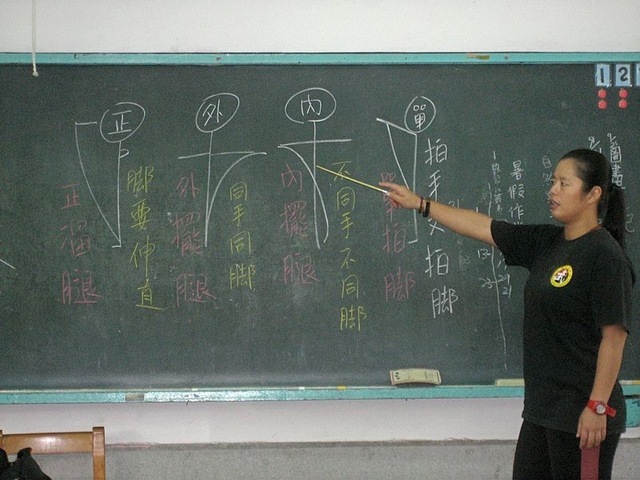 正
正擺腿
腳要伸直
外
外擺腿
同手同腳
內
內擺腿
不同手不同腳
單
單拍腳
拍手又拍腳
暑假作
1 2